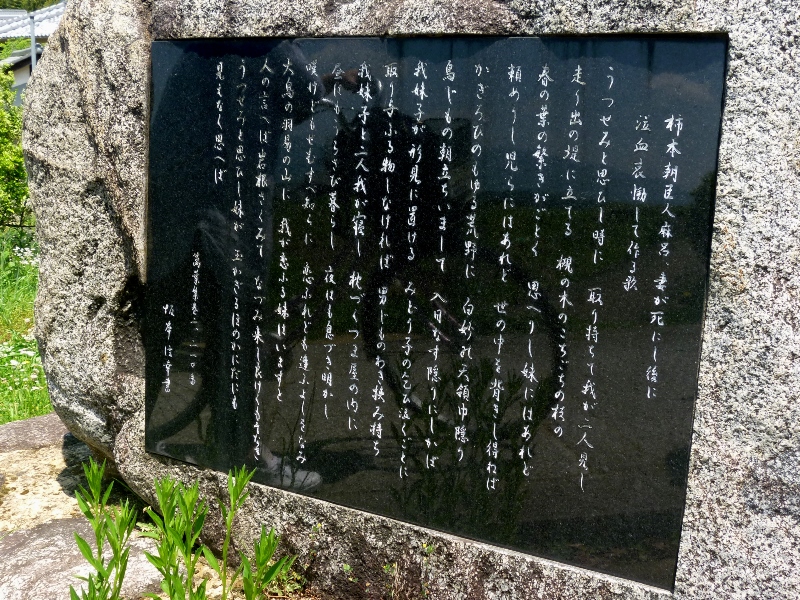 柿本朝臣人麻呂、妻が死にし後に
泣血哀慟して作る歌
うつせみと思ひし時に 取り持ちて我が二人見し
走り出の堤に立てる 槻の木のこちごちの枝の
春の葉の繁きがごとく 思へりし妹にはあれど
頼めりし児らにはあれど 世の中を背きし得ねば
かぎろひのもゆる荒野に 白妙の天領巾隠り
鳥じもの朝立ちいまして 入日なす隠りにしかば
我妹子が形見に置ける みどり子の乞ひ泣くごとに
取り与ふる物しなければ 男じものわき挟み持ち
我妹子と二人我が寝し 枕づくつま屋の内に
昼はもうらさび暮らし 夜はも息づき明かし
嘆けどもせむすべ知らに 恋ふれども逢ふよしをなみ
大鳥の羽易の山に 我が恋ふる妹はいますと
人の言へば岩根さくみて なづみ来し良けくもそなき
うつせみと思ひし妹が 玉かぎるほのかにだにも
見えなく思へば
萬葉集巻二・二一〇番